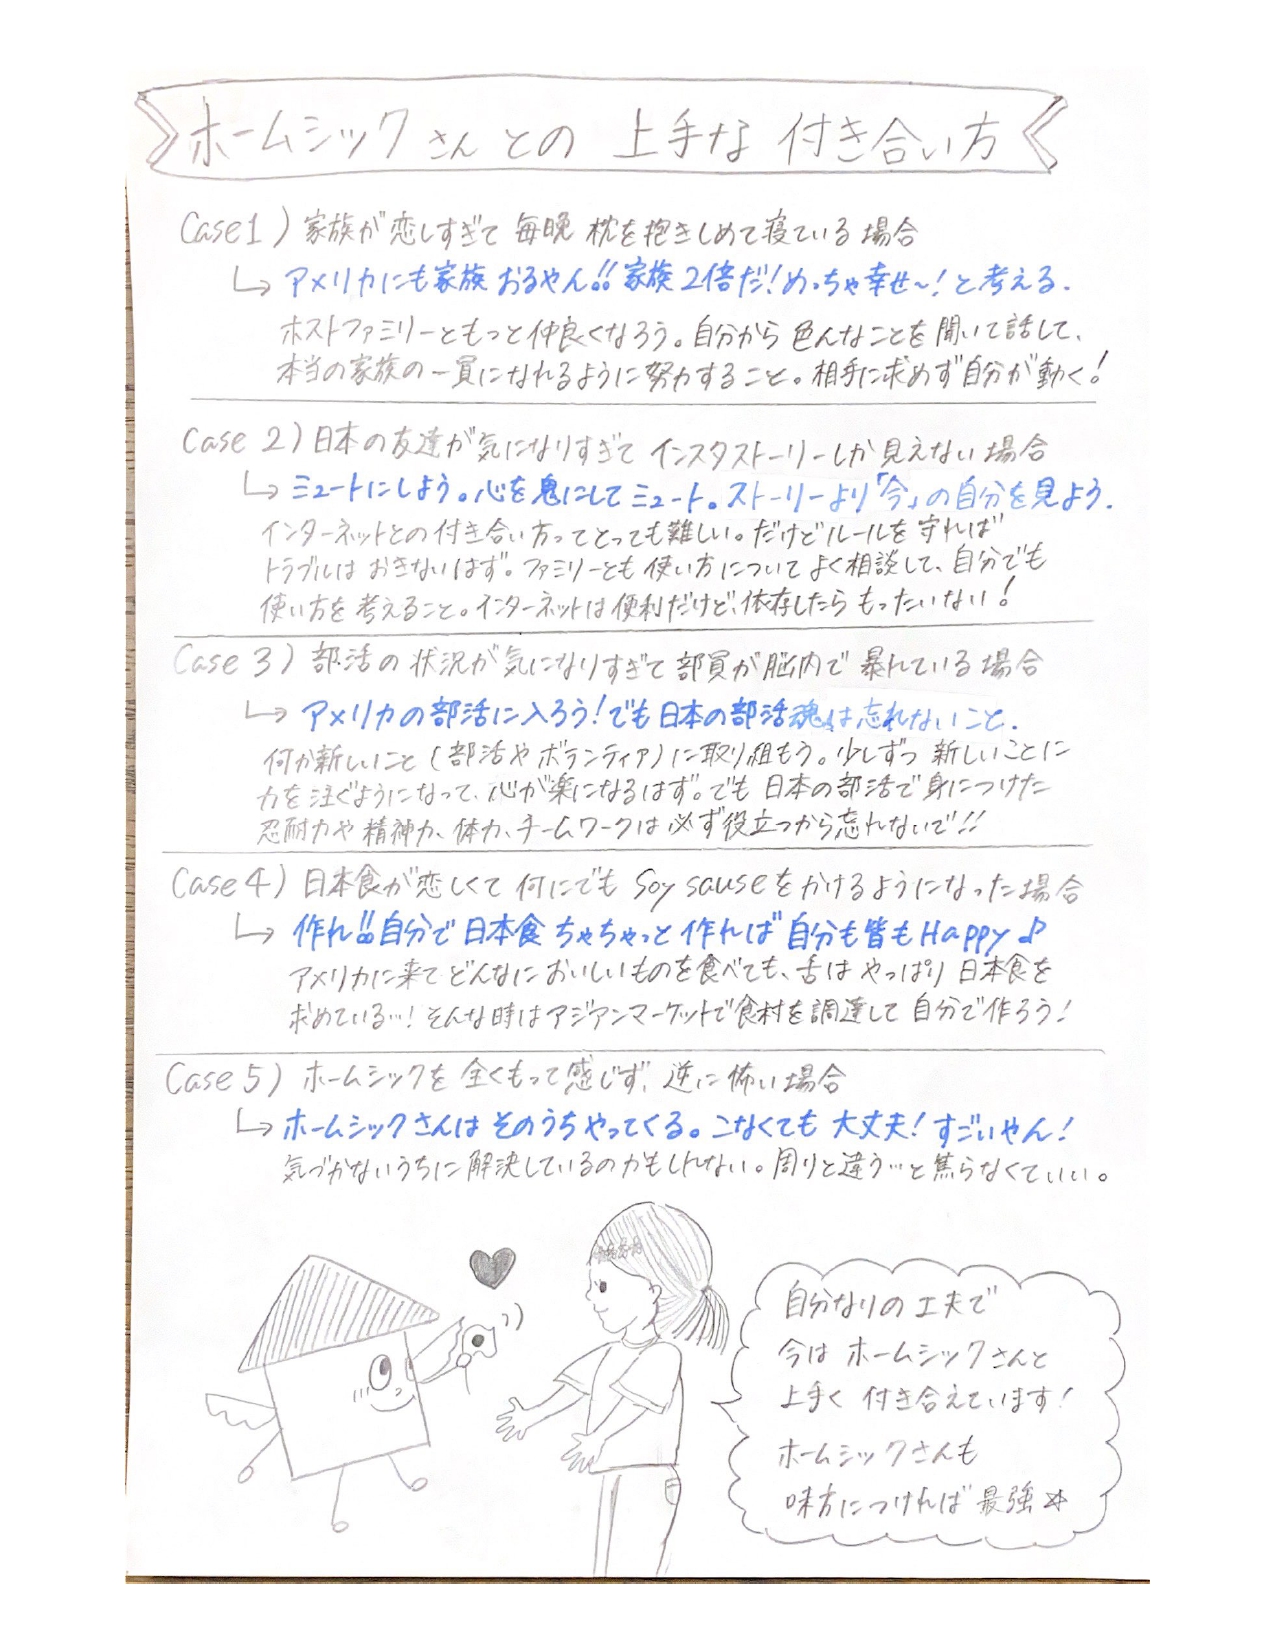 ホームシックさんとの上手な付き合い方
Case1) 家族が恋しすぎて毎晩枕を抱きしめて寝ている場合
↳ アメリカにも家族おるやん!!家族2倍だ!めっちゃ幸せ〜!と考える.
ホストファミリーともっと仲良くなろう。自分から色んなことを聞いて話して、
本当の家族の一員になれるように努力すること。相手に求めず自分が動く!
Case 2) 日本の友達が気になりすぎてインスタストーリーしか見えない場合
↳ ミュートにしよう。心を鬼にしてミュート。ストーリーより「今」の自分を見よう.
インターネットとの付き合い方ってとっても難しい。だけどルールを守れば
トラブルはおきないはず。ファミリーとも使い方についてよく相談して、自分でも
使い方を考えること。インターネットは便利だけど、依存したらもったいない!
Case 3) 部活の状況が気になりすぎて部員が脳内で暴れている場合
↳ アメリカの部活に入ろう!でも日本の部活魂は忘れないこと.
何か新しいこと(部活やボランティア)に取り組もう。少しずつ新しいことに
力を注ぐようになって、心が楽になるはず。でも日本の部活で身につけた
忍耐力や精神力、体力、チームワークは必ず役立つから忘れないで!!
Case4) 日本食が恋しくて何にでもSoy sauseをかけるようになった場合
↳ 作れ!!自分で日本食ちゃちゃっと作れば自分も皆もHappy♪
アメリカに来てどんなにおいしいものを食べても、舌はやっぱり日本食を
求めている…!そんな時はアジアンマーケットで食材を調達して自分で作ろう!
Case5) ホームシックを全くもって感じず、逆に怖い場合
↳ ホームシックさんはそのうちやってくる。こなくても大丈夫!すごいやん!
気づかないうちに解決しているのかもしれない。周りと違う…と焦らなくていい。
自分なりの工夫で
今はホームシックさんと
上手く付き合えています!
ホームシックさんも
味方につければ最強☆